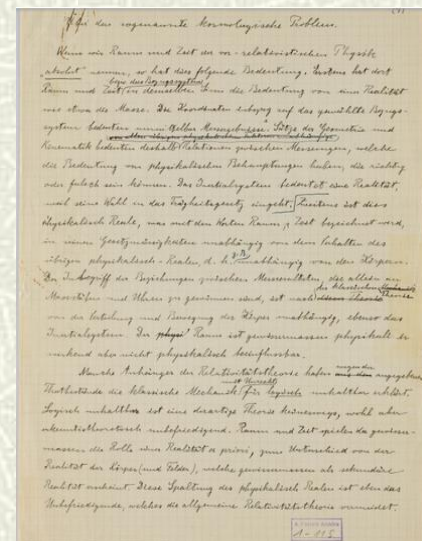 (1)
den sogenannte kosmologische Problem.
Wenn wir Raum und Zeit der vor-relativistischen Physik
absolut nennen, so hat dies folgende Bedeutung. Erstens hat dort
Raum und Zeit in demselben Sinn die Bedeutung von einer Realität
wie etwa die Masse. Die Koordinaten in bezug auf das gewählte Bezugs-
system bedeuten unmittelbar Messergebnisse. Sätze der Geometrie und
Kinematik bedeuten deshalb Relationen zwischen Messungen, welche
die Bedeutung von physikalischen Behauptungen haben, die richtig
oder falsch sein können. Das Inertialsystem bedeutet eine Realität,
weil seine Wahl in das Trägheitsgesetz eingeht. Zweitens ist dies
physikalisch Reale, was mit den Worten Raum, Zeit bezeichnet wird,
in seinen Gesetzmässigkeiten unabhängig von dem Inhalten des
übrigen physikalisch-Realen, d. h. z. B. unabhängig von den Körpern.
Der Inbegriff der Beziehungen zwischen Messresultaten, die allein an
Maassstäben und Uhren zu gewinnen sind, ist nach
der klassischen Mechanik
Theorie
von der Verteilung und Bewegung der Körper unabhängig, ebenso das
Inertialsystem. Der Raum ist gewissermassen physikalisch
wirkend aber nicht physikalisch beeinflussbar.
Manche Anhänger der Relativitätstheorie haben angegebenen
mit Unrecht
Thatbestände die klassische Mechanik für logisch unhaltbar erklärt.
Logisch unhaltbar ist eine derartige Theorie keineswegs, wohl aber
erkenntnistheoretisch unbefriedigend. Raum und Zeit spielen da gewisser-
massen die Rolle einer Realität a priori, zum Unterschied von der
Realität der Körper (und Felder), welche gewissermassen als sekundäre
Realität erscheint. Diese Spaltung des physikalisch Realen ist eben das
Unbefriedigende, welches die allgemeine Relativitätstheorie vermeidet.
1-115